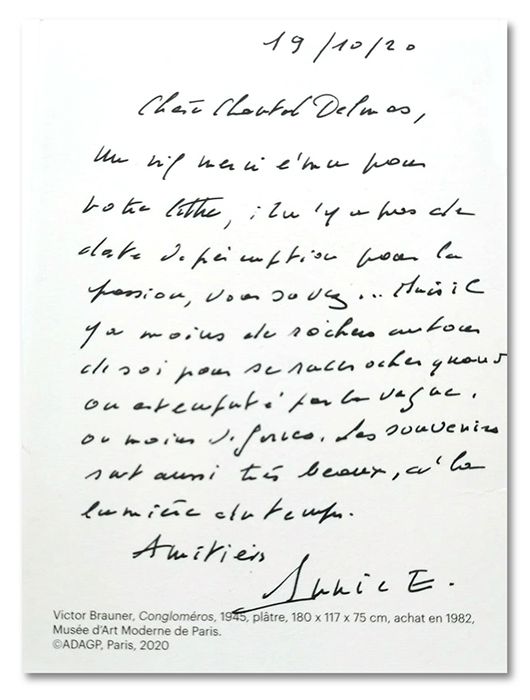 19/10/20
Chère Chantal Delmas,
Un vif merci ému pour
votre lettre, il n'y a pas de
date de péremption pour la
passion, vous savez... Mais il
y a moins de rochers autour
de soi pour se raccrocher quand
on est emporté par la vague.
ou moins de forces. Les souvenirs
sont aussi très beaux, à la
lumière du temps.
Amitiés
Annie E.
Victor Brauner, Congloméros, 1945, plâtre, 180 x 117 x 75 cm, achat en 1982,
Musée d'Art Moderne de Paris.
©ADAGP, Paris, 2020